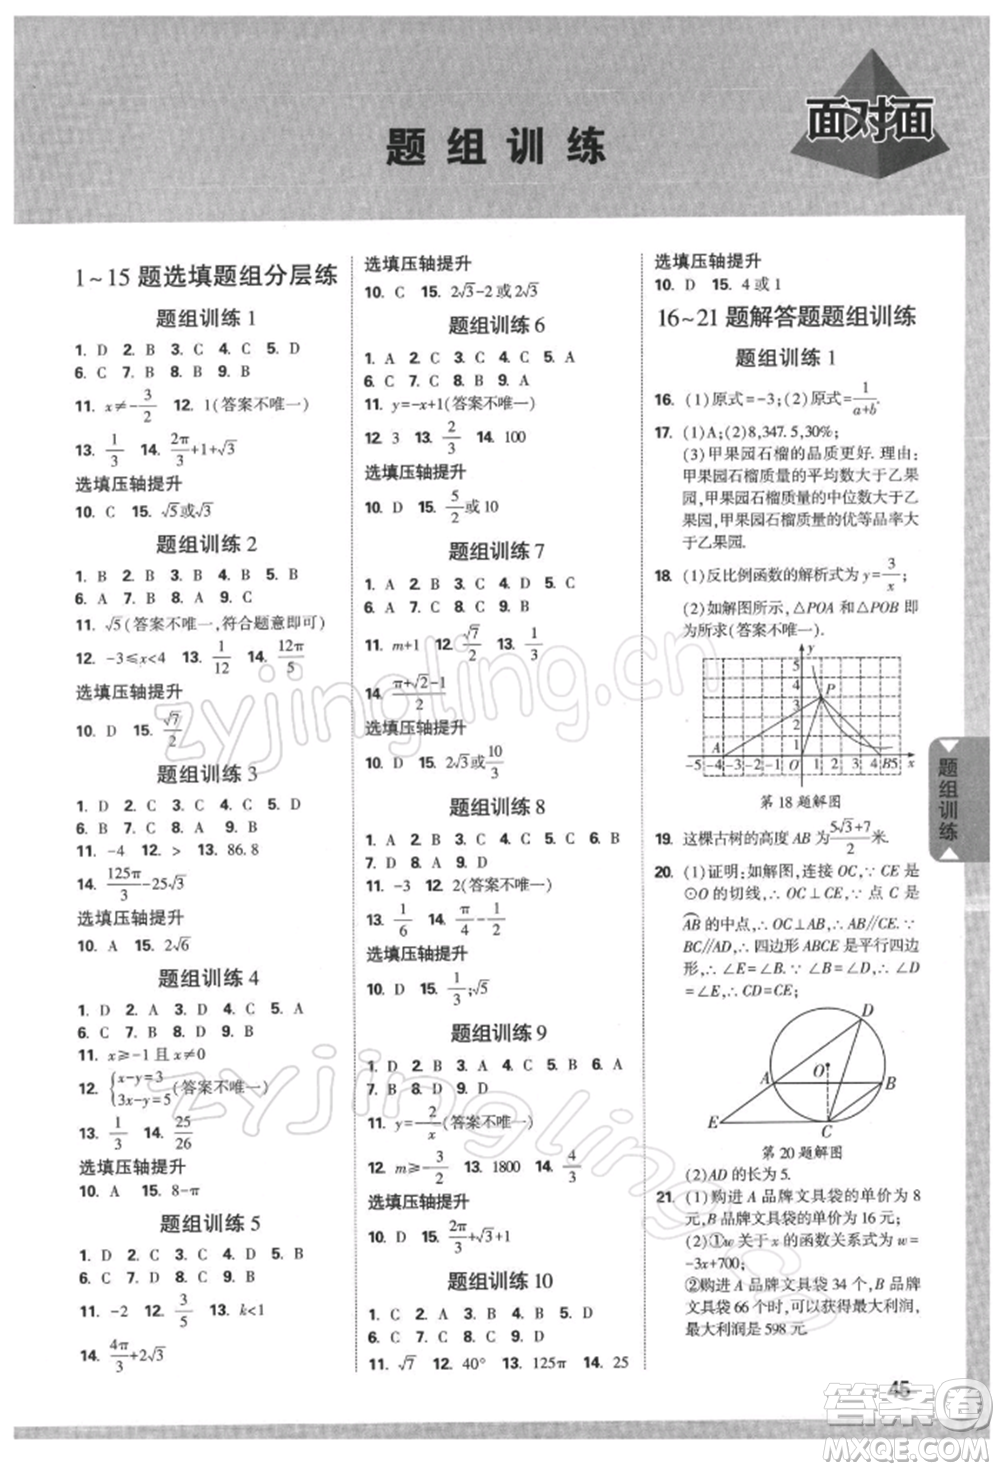 面对面
题组训练
1~15题选填题组分层练
题组训练1
1. D 2. B 3. C 4. C 5. D
6. C 7. B 8. B 9. B
11. x≠-3/2 12. 1(答案不唯一)
13. 1/3 14. 2π/3+1+√3
选填压轴提升
10. C 15. √5或√3
题组训练2
1. B 2. B 3. B 4. B 5. B
6. A 7. B 8. A 9. C
11. √5(答案不唯一,符合题意即可)
12. -3≤x<4 13. 1/12 14. 12π/5
选填压轴提升
10. D 15. √7/2
题组训练3
1. D 2. C 3. D 4. C 5. D
6. B 7. C 8. C 9. D
11. -4 12. > 13. 86.8
14. 125π/3-25√3
选填压轴提升
10. A 15. 2√6
题组训练4
1. D 2. A 3. D 4. A 5. C
6. C 7. B 8. C 9. D
11. x≥-1且x≠0
12. {x-y=3
3x-y=5 (答案不唯一)
13. 1/3 14. 25/26
选填压轴提升
10. A 15. 8-π
题组训练5
1. D 2. C 3. C 4. D 5. C
6. B 7. D 8. C 9. D
11. -2 12. 3/5 13. k<1
14. 4π/3+2√3
选填压轴提升
10. C 15. 2√3-2或2√3
题组训练6
1. A 2. C 3. C 4. C 5. A
6. C 7. C 8. A 9. D
11. y=-x+1(答案不唯一)
12. 3 13. 2/3 14. 100
选填压轴提升
10. D 15. 5/2或10
题组训练7
1. A 2. C 3. C 4. D 5. C
6. A 7. C 8. B 9. D
11. m+1 12. √7/2 13. 1/3
14. (π+√2-1)/2
选填压轴提升
10. D 15. 2√3或10/3
题组训练8
1. A 2. B 3. C 4. C 5. C 6. B
7. D 8. D 9. A
11. -3 12. 2(答案不唯一)
13. 1/6 14. π/4-1/2
选填压轴提升
10. D 15. 1/3;√5
题组训练9
1. D 2. B 3. A 4. C 5. B 6. A
7. D 8. B 9. D
11. y=-2/x(答案不唯一)
12. m≥-3/2 13. 1800 14. 4/3
选填压轴提升
10. D 15. 2π/3+√3+1
题组训练10
1. C 2. A 3. A 4. B 5. D
6. C 7. C 8. C 9. D
11. √7 12. 40° 13. 125π 14. 25
选填压轴提升
10. D 15. 4或1
16~21题解答题题组训练
题组训练1
16. (1)原式=-3;(2)原式=1/(a+b).
17. (1)A;(2)8,347.5,30%;
(3)甲果园石榴的品质更好. 理由:
甲果园石榴质量的平均数大于乙果
园,甲果园石榴质量的中位数大于乙果
园,甲果园石榴质量的优等品率大
于乙果园.
18. (1)反比例函数的解析式为y=3/x;
(2)如解图所示,△POA和△POB即
为所求(答案不唯一).
y
5
4
3
2
1
P
A
O
-5 -4 -3 -2 -1 O 1 2 3 4 B5 x
第18题解图
19. 这棵古树的高度AB为(5√3+7)/2米.
20. (1)证明:如解图,连接OC,∵CE是
⊙O的切线,∴OC⊥CE,∵点C是
AB的中点,∴OC⊥AB,∴AB∥CE. ∵
BC∥AD,∴四边形ABCE是平行四边
形,∴∠E=∠B. ∵∠B=∠D,∴∠D
=∠E,∴CD=CE;
D
O
A
B
E
C
第20题解图
(2)AD的长为5.
21. (1)购进A品牌文具袋的单价为8
元,B品牌文具袋的单价为16元;
(2)①w关于x的函数关系式为w=
-3x+700;
②购进A品牌文具袋34个,B品牌
文具袋66个时,可以获得最大利润,
最大利润是598元.
题组训练
45
zyjingling.cn
zyjingling.cn
答案圈
MXQE.COM